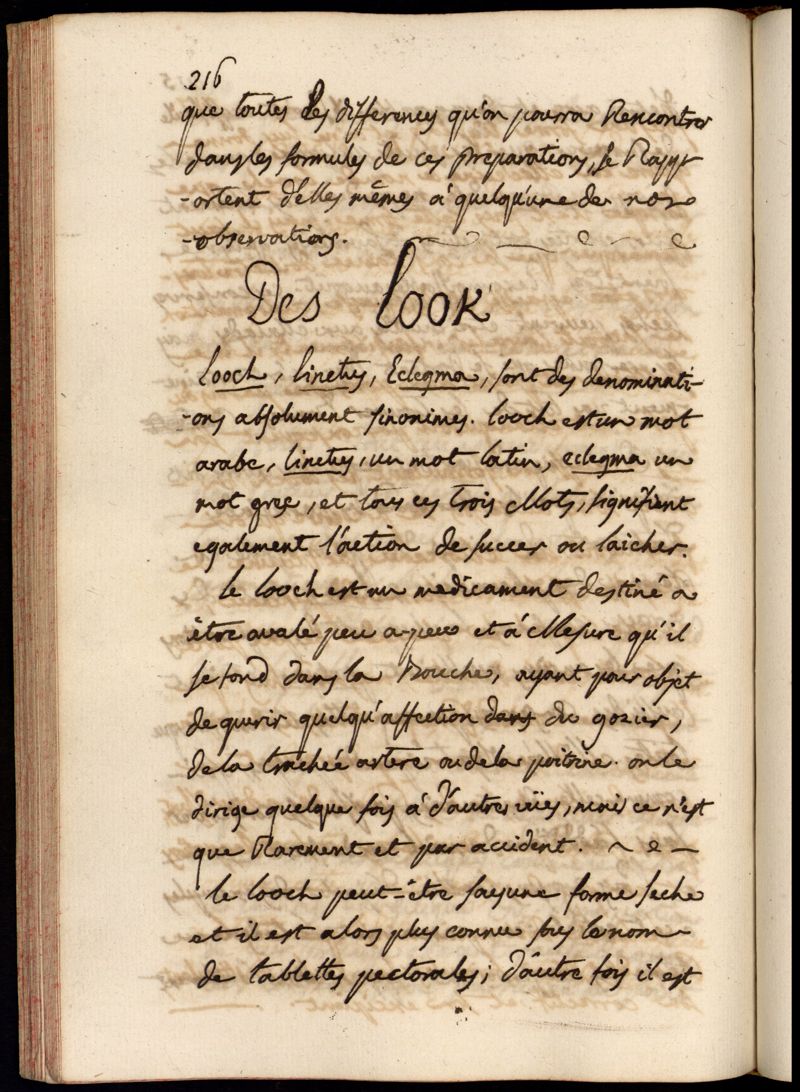 216
que toutes les differences qu'on pourra Rencontrer
dans les formules de ces preparations, se Rapp
-ortent d'elles mêmes à quelqu'une de nos
-observations.
Des Look
looch, linctus, Eclegma, sont des denominati-
-ons absolument sinonimes. looch est un mot
arabe, linctus, un mot latin, eclegma un
mot grec, et tous ces trois Mots, signifient
egalement l'action de succer ou laicher.
le looch est un medicament destiné a
être avalé peu a-peu et à Mesure qu'il
se fond dans la Bouche, ayant pour objet
de guerir quelqu'affection dans du gozier,
de la trachée artere ou de la poitrine. on le
dirige quelque fois à d'autres vües, mais ce n'est
que Rarement et par accident.
le looch peut-être sous une forme seche
et il est alors plus connu sous le nom
de tablettes pectorales; d'autre fois il est